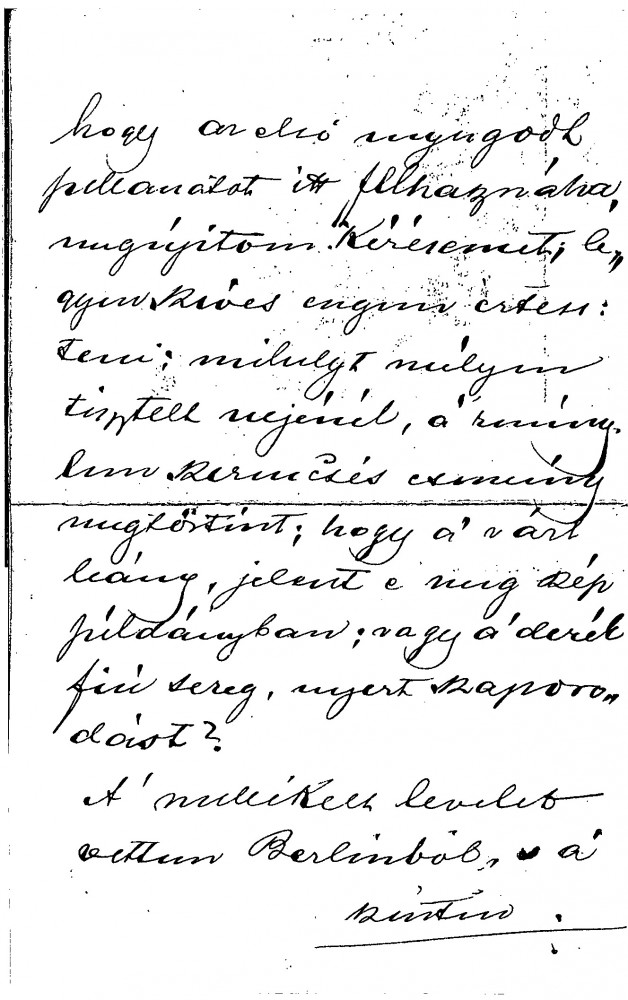 hogy az első nyugodt
pillanatot itt felhasználva,
megújítom Kérésemet; le„
gyen szíves engem értesí:
teni; mihelyt mélyen
tisztelt nejénél, a' remény„
lem szerencsés esemény
megtörtént; hogy a' várt
leány, jelent e meg szép
példányban; vagy a' derék
fiú sereg, nyert szaporo„
dást?
A' mellékelt levelet
vettem Berlinből, a'